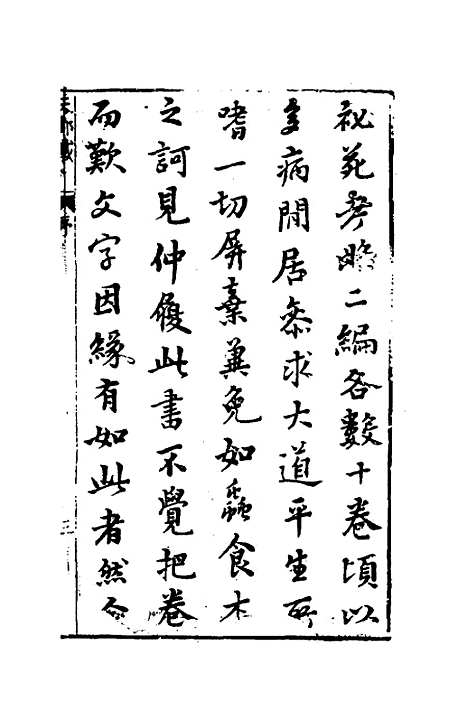 祕苑考略二編各數十卷頃以
多病閒居叅求大道平生所
嗜一切屏棄冀免如蟲食木
之訶見仲履此書不覺把卷
而歎文字因緣有如此者然今
序
三